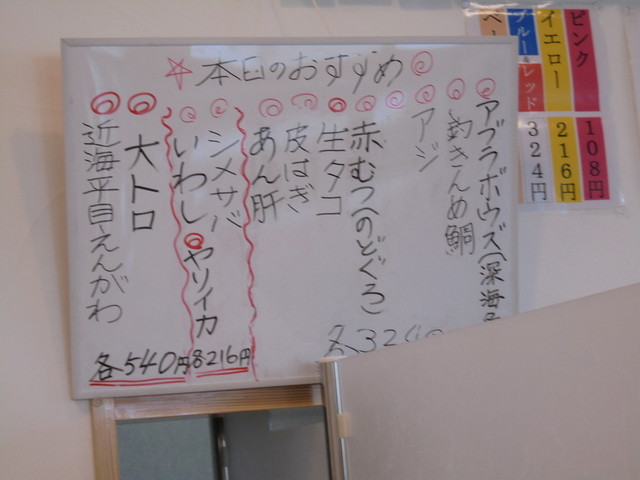 本日のおすすめ
アブラボウズ(深海
釣きんめ鯛
アジ
赤むつ(のどぐろ)
生タコ
皮はぎ
あん肝
シメサバ
ヤリイカ
いわし
大トロ
近海平目えんがわ
各324
各216円
各540円
ピンク
108円
イエロー
216円
ブルー&レッド
324円